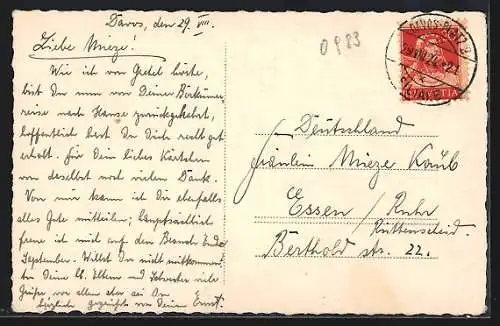 Davos, den 29. VIII.
Liebe Mieze!
Wie ich von Gretel hörte,
bist Du nun von Deiner Borkumer
reise nach Hause zurückgekehrt,
hoffentlich hast Du Dich recht gut
erholt. Für Dein liebes Kärtchen
von daselbst noch vielen Dank.
Von mir kann ich Dir ebenfalls
alles Gute mitteilen; hauptsächlich
freue ich mich auf den Besuch Ende
September. Willst Du nicht mitkommen?
Deine lb. Eltern und Schwester viele
Grüße vor allem aber sei Du
herzlich gegrüßt von Deinem Ernst.
0983
DAVOS-PLATZ
29.VIII.24
HELVETIA
Deutschland
Fräulein Mieze Kaub
Essen / Ruhr
Rüttenscheid.
Berthold str. 22.